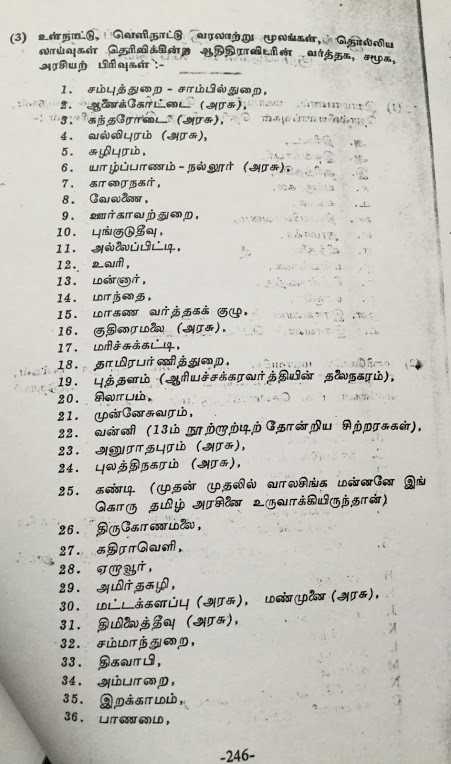 (3) உள்நாட்டு, வெளிநாட்டு வரலாற்று மூலங்கள், தொல்லிய
லாய்வுகள் தெரிவிக்கின்ற ஆதிதிராவிடரின் வர்த்தக, சமூக,
அரசியற் பிரிவுகள் :-
1. சம்புத்துறை - சாம்பில்துறை,
2. ஆனைக்கோட்டை (அரசு),
3. கந்தரோடை (அரசு),
4. வல்லிபுரம் (அரசு),
5. சுழிபுரம்,
6. யாழ்ப்பாணம் - நல்லூர் (அரசு),
7. காரைநகர்,
8. வேலணை,
9. ஊர்காவற்துறை,
10. புங்குடுதீவு,
11. அல்லைப்பிட்டி,
12. உவரி,
13. மன்னார்,
14. மாந்தை,
15. மாகண வர்த்தகக் குழு,
16. குதிரைமலை (அரசு),
17. மரிச்சுக்கட்டி,
18. தாமிரபர்ணித்துறை,
19. புத்தளம் (ஆரியச்சக்கரவர்த்தியின் தலைநகரம்),
20. சிலாபம்,
21. முன்னேசுவரம்,
22. வன்னி (13ம் நூற்றூட்டிற் தோன்றிய சிற்றரசுகள்),
23. அனுராதபுரம் (அரசு),
24. புலத்திநகரம் (அரசு),
25. கண்டி (முதன் முதலில் வாலசிங்க மன்னனே இங்
கொரு தமிழ் அரசினை உருவாக்கியிருந்தான்)
26. திருகோணமலை,
27. கதிராவெளி,
28. ஏறாவூர்,
29. அமிர்தகழி,
30. மட்டக்களப்பு (அரசு), மண்முனை (அரசு),
31. திமிலைத்தீவு (அரசு),
32. சம்மாந்துறை,
33. திகவாபி,
34. அம்பாறை,
35. இறக்காமம்,
36. பாணமை,
-246-